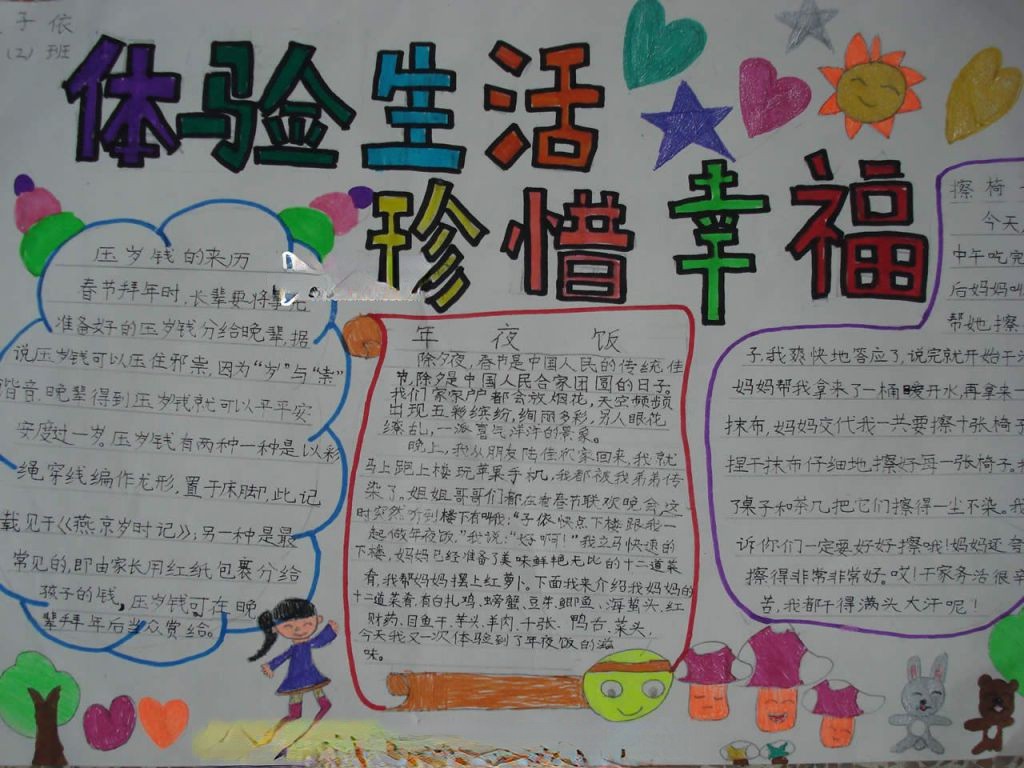 子依
(2)班
体验生活
珍惜幸福
压岁钱的来历
春节拜年时,长辈要将事先
准备好的压岁钱分给晚辈,据
说压岁钱可以压住邪祟,因为“岁”与“祟”
谐音,晚辈得到压岁钱就可以平平安
安度过一岁。压岁钱有两种一种是以彩
绳穿线编作龙形,置于床脚,此记
载见于《燕京岁时记》;另一种是最
常见的,即由家长用红纸包裹分给
孩子的钱,压岁钱可在晚
辈拜年后当众赏给。
年夜饭
除夕夜,春节是中国人民的传统佳
节,除夕是中国人民合家团圆的日子。
我们家家户户都会放烟花,天空频频
出现五彩缤纷,绚丽多彩,另人眼花
缭乱,一派喜气洋洋的景象。
晚上,我从朋友陆佳忻家回来,我就
马上跑上楼玩苹果手机,我都被我弟弟传
染了。姐姐哥哥们都在看春节联欢晚会,这
时突然听到楼下有喊我:“子依快点下楼跟我一
起做年夜饭,”我说:“好啊!”我立马快速的
下楼,妈妈已经准备了美味鲜艳无比的十二道菜
肴,我帮妈妈摆上红萝卜。下面我来介绍我妈妈的
十二道菜肴,有白扎鸡、螃蟹、豆芽、鲫鱼、海蜇头、红
财药、目鱼干、芋头、羊肉、千张、鸭右、菜头,
今天我又一次体验到了年夜饭的滋
味。
擦椅
今天
中午吃完
后妈妈叫
帮她擦
子,我爽快地答应了,说完就开始干活
妈妈帮我拿来了一桶暖开水,再拿来一
抹布,妈妈交代我一共要擦十张椅子
捏干抹布仔细地擦好每一张椅子,我
了桌子和茶几把它们擦得一尘不染。我
诉你们一定要好好擦哦!妈妈还夸
擦得非常非常好。哎!干家务活很辛
苦,我都干得满头大汗呢!